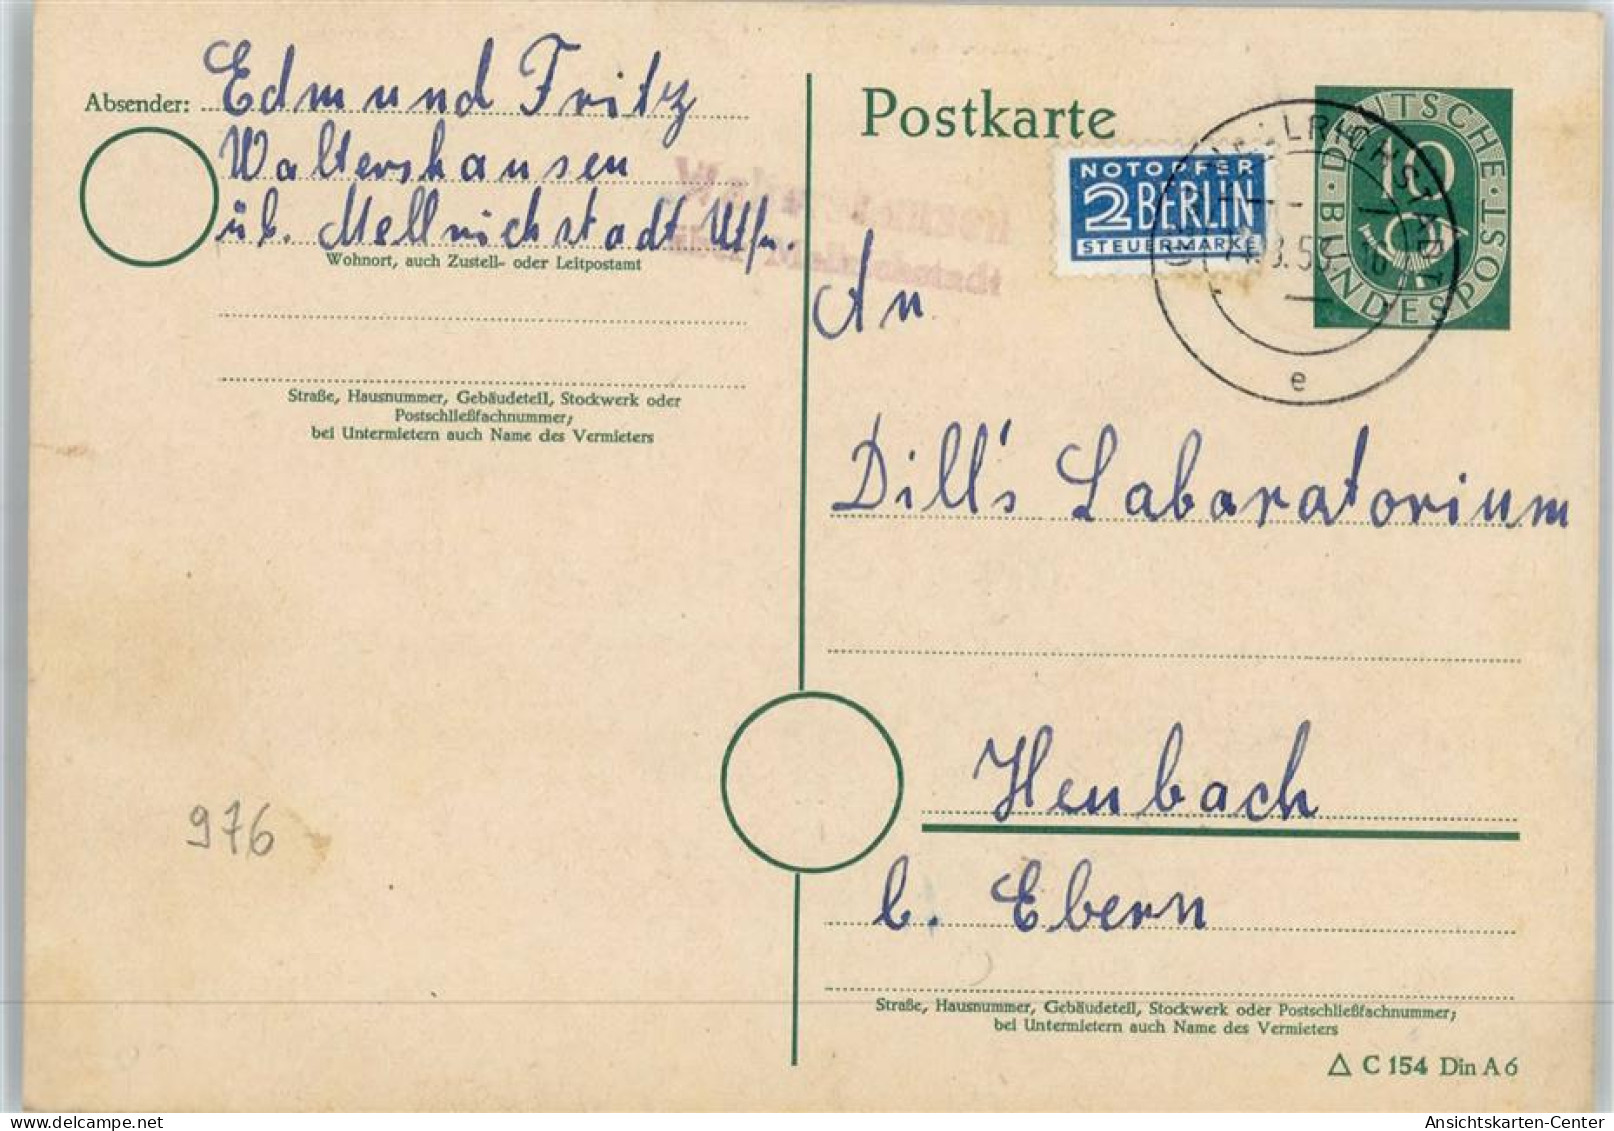 Absender: Edmund Fritz
Waltershausen
üb. Mellrichstadt Ufr.
Wohnort, auch Zustell- oder Leitpostamt
Straße, Hausnummer, Gebäudeteil, Stockwerk oder
Postschließfachnummer;
bei Untermietern auch Name des Vermieters
976
Postkarte
NOTOPFER
2 BERLIN
STEUERMARKE
DEUTSCHE BUNDESPOST
10
MELLRICHSTADT
e
An
Dill's Labaratorium
Heubach
b. Ebern
Straße, Hausnummer, Gebäudeteil, Stockwerk oder Postschließfachnummer;
bei Untermietern auch Name des Vermieters
△ C 154 Din A 6
Ansichtskarten-Center